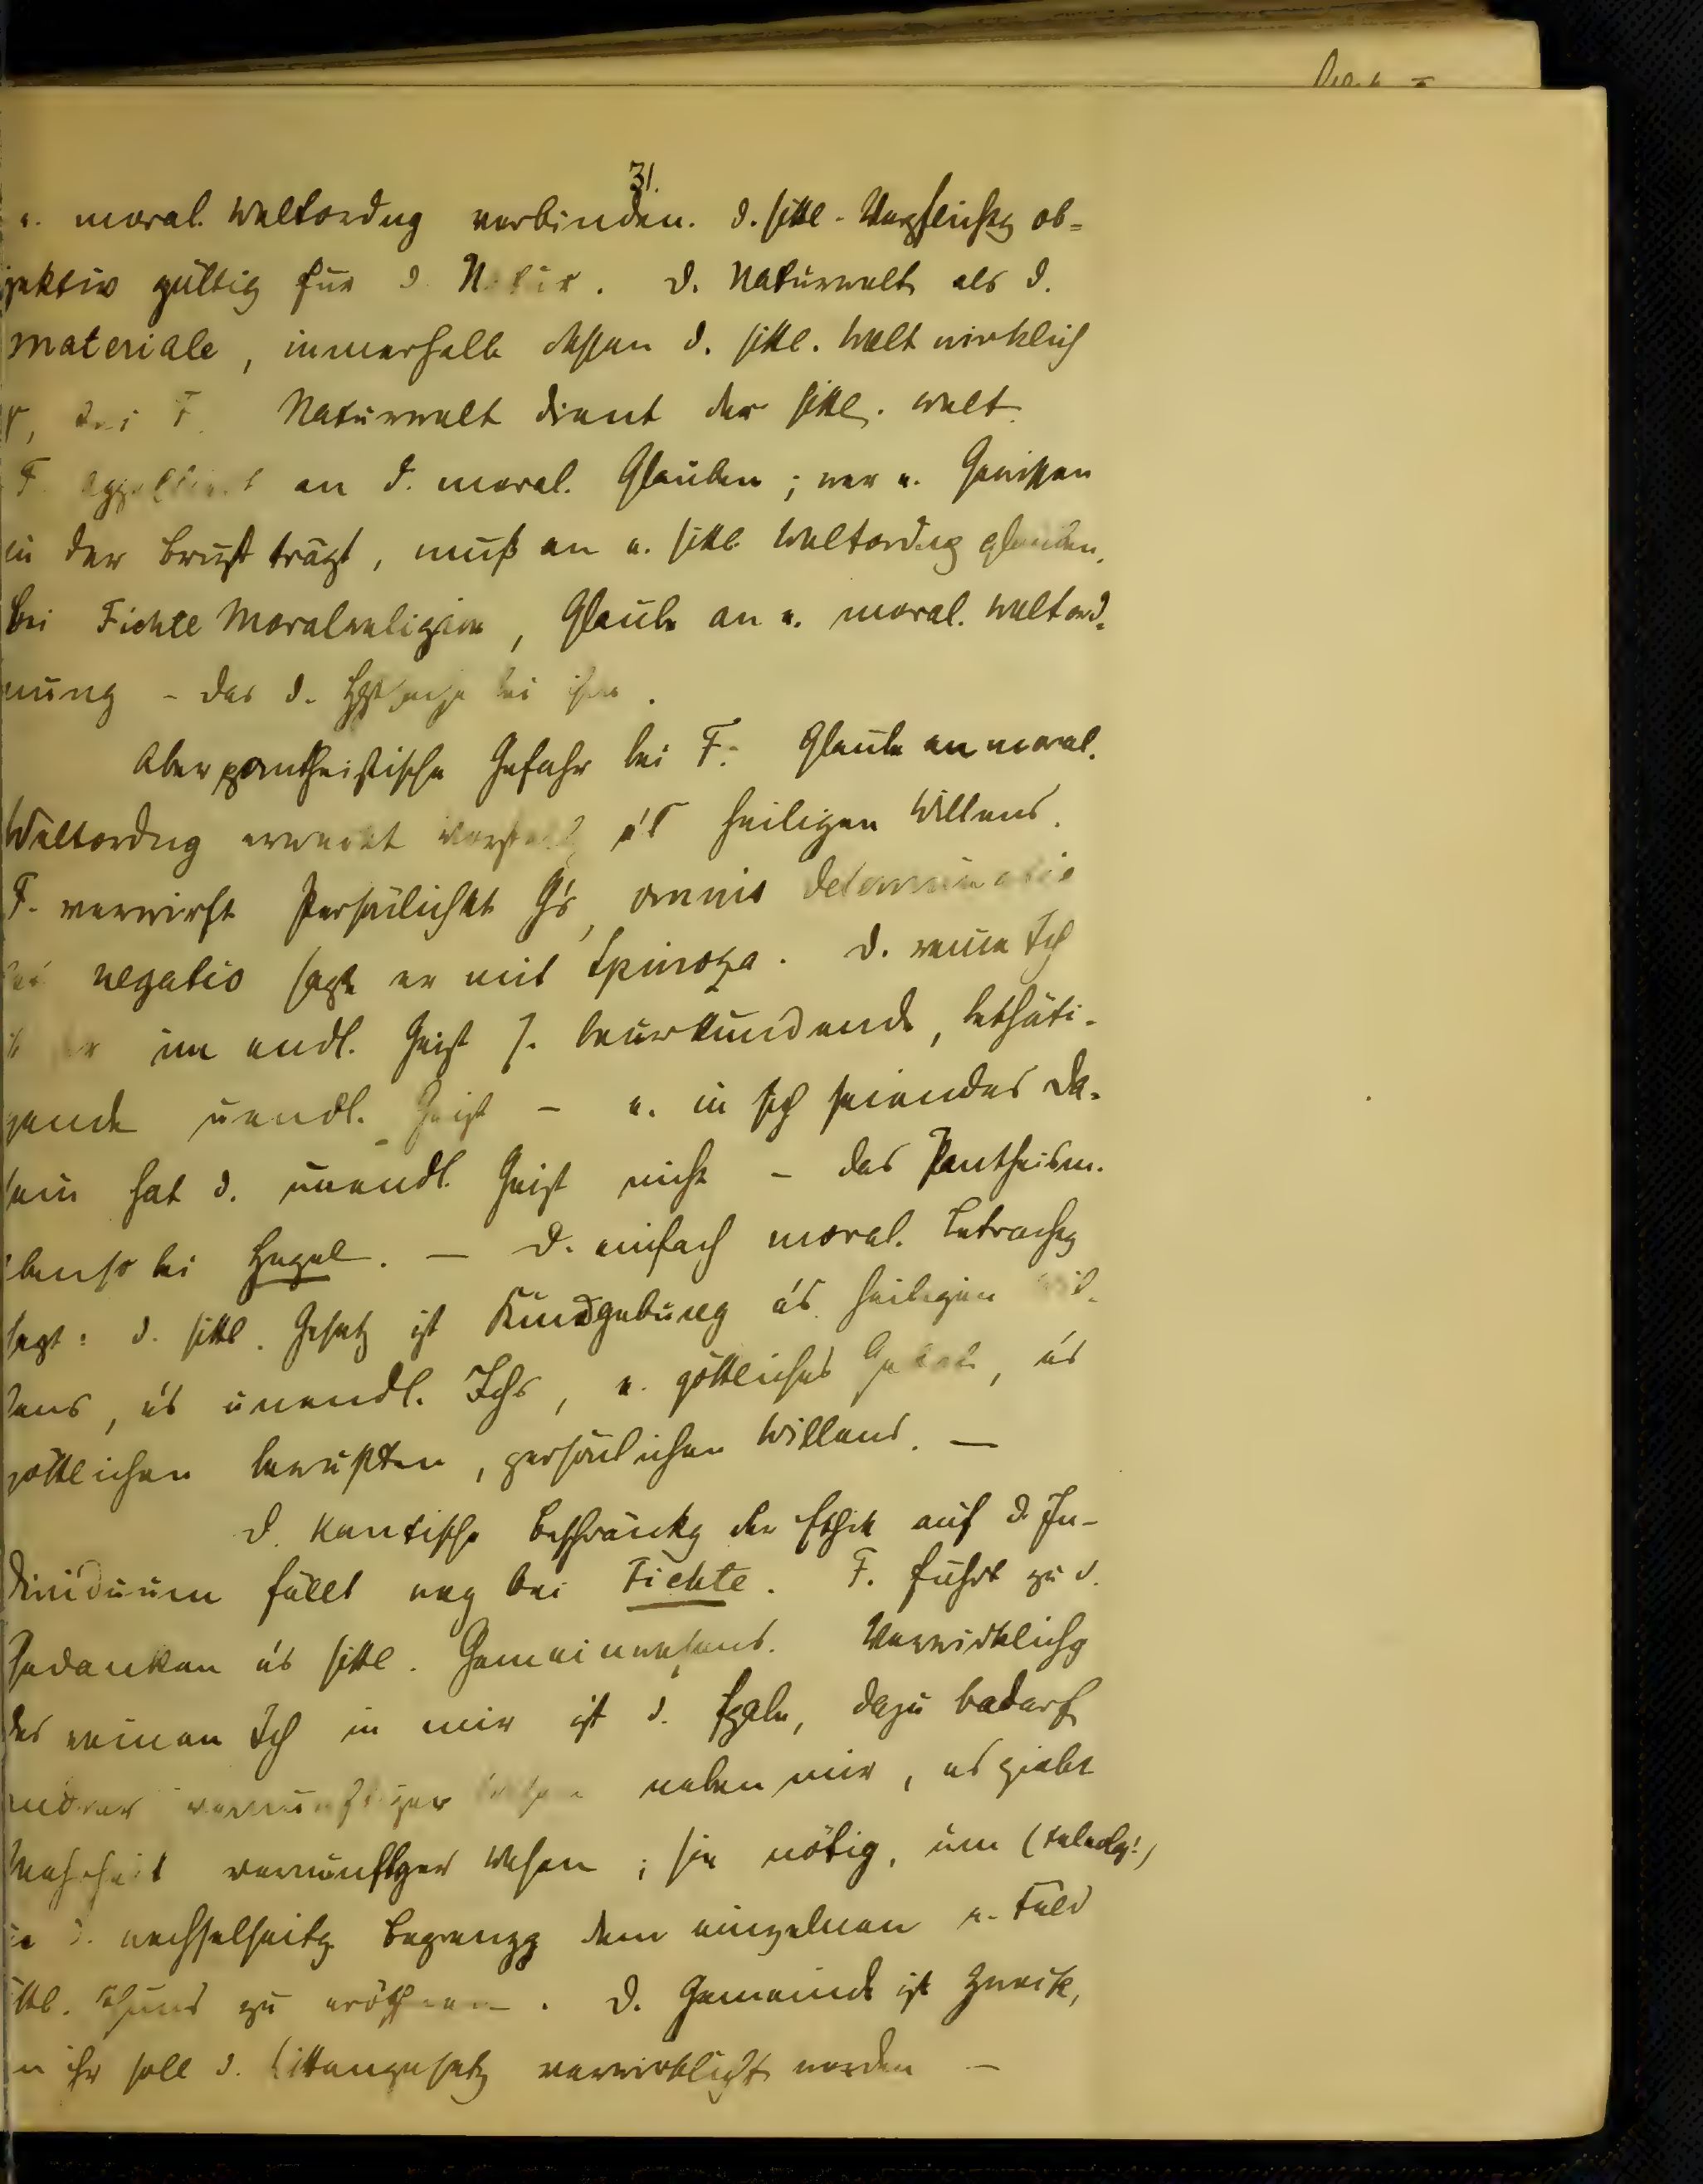 31.
e. moral. Weltordng verbinden. D. sittl. Verpflichtg ob-
jektiv gültig für d. Natur. D. Naturwelt als d.
materiale, innerhalb dessen d. sittl. Welt wirklich
bei F. Naturwelt dient der sittl. Welt.
F. appelliert an d. moral. Glauben; wer e. Gewissen
in der Brust trägt, muß an e. sittl. Weltordng glauben.
Bei Fichte Moralreligion, Glaube an e. moral. Weltord-
nung – das d. bei ihm.
Aber pantheistische Gefahr bei F. Glaube an moral.
Weltordng erweckt Vorstellg e's heiligen Willens.
F. verwirft Persönlichkt G's, omnis determinatio
est negatio sagt er mit Spinoza. D. reine Ich
ist der im endl. Geist s. beurkundende, bethäti-
gende unendl. Geist – e. in sich seiendes Da-
sein hat d. unendl. Geist nicht – das Pantheism.
ebenso bei Hegel. — D. einfach moral. Betrachtg
sagt: d. sittl. Gesetz ist Kundgebung e's heiligen Wil-
lens, e's unendl. Ichs, e. göttliches Gebot, e's
göttlichen bewußten, persönlichen Willens. —
D. Kantische Beschränkg der Ethik auf d. In-
dividuum fällt weg bei Fichte. F. führt zu d.
Gedanken e's sittl. Gemeinwesens. Verwirklichg
des reinen Ich in mir ist d. Aufgabe, dazu bedarf
andrer vernünftiger Wesen neben mir, es giebt
Mehrheit vernünftger Wesen; sie nötig, um (teleolog!)
d. wechselseitg Begrenzg dem einzelnen e. Feld
sittl. Thuns zu eröffnen. D. Gemeinde ist Zweck,
in ihr soll d. Sittengesetz verwirklicht werden –